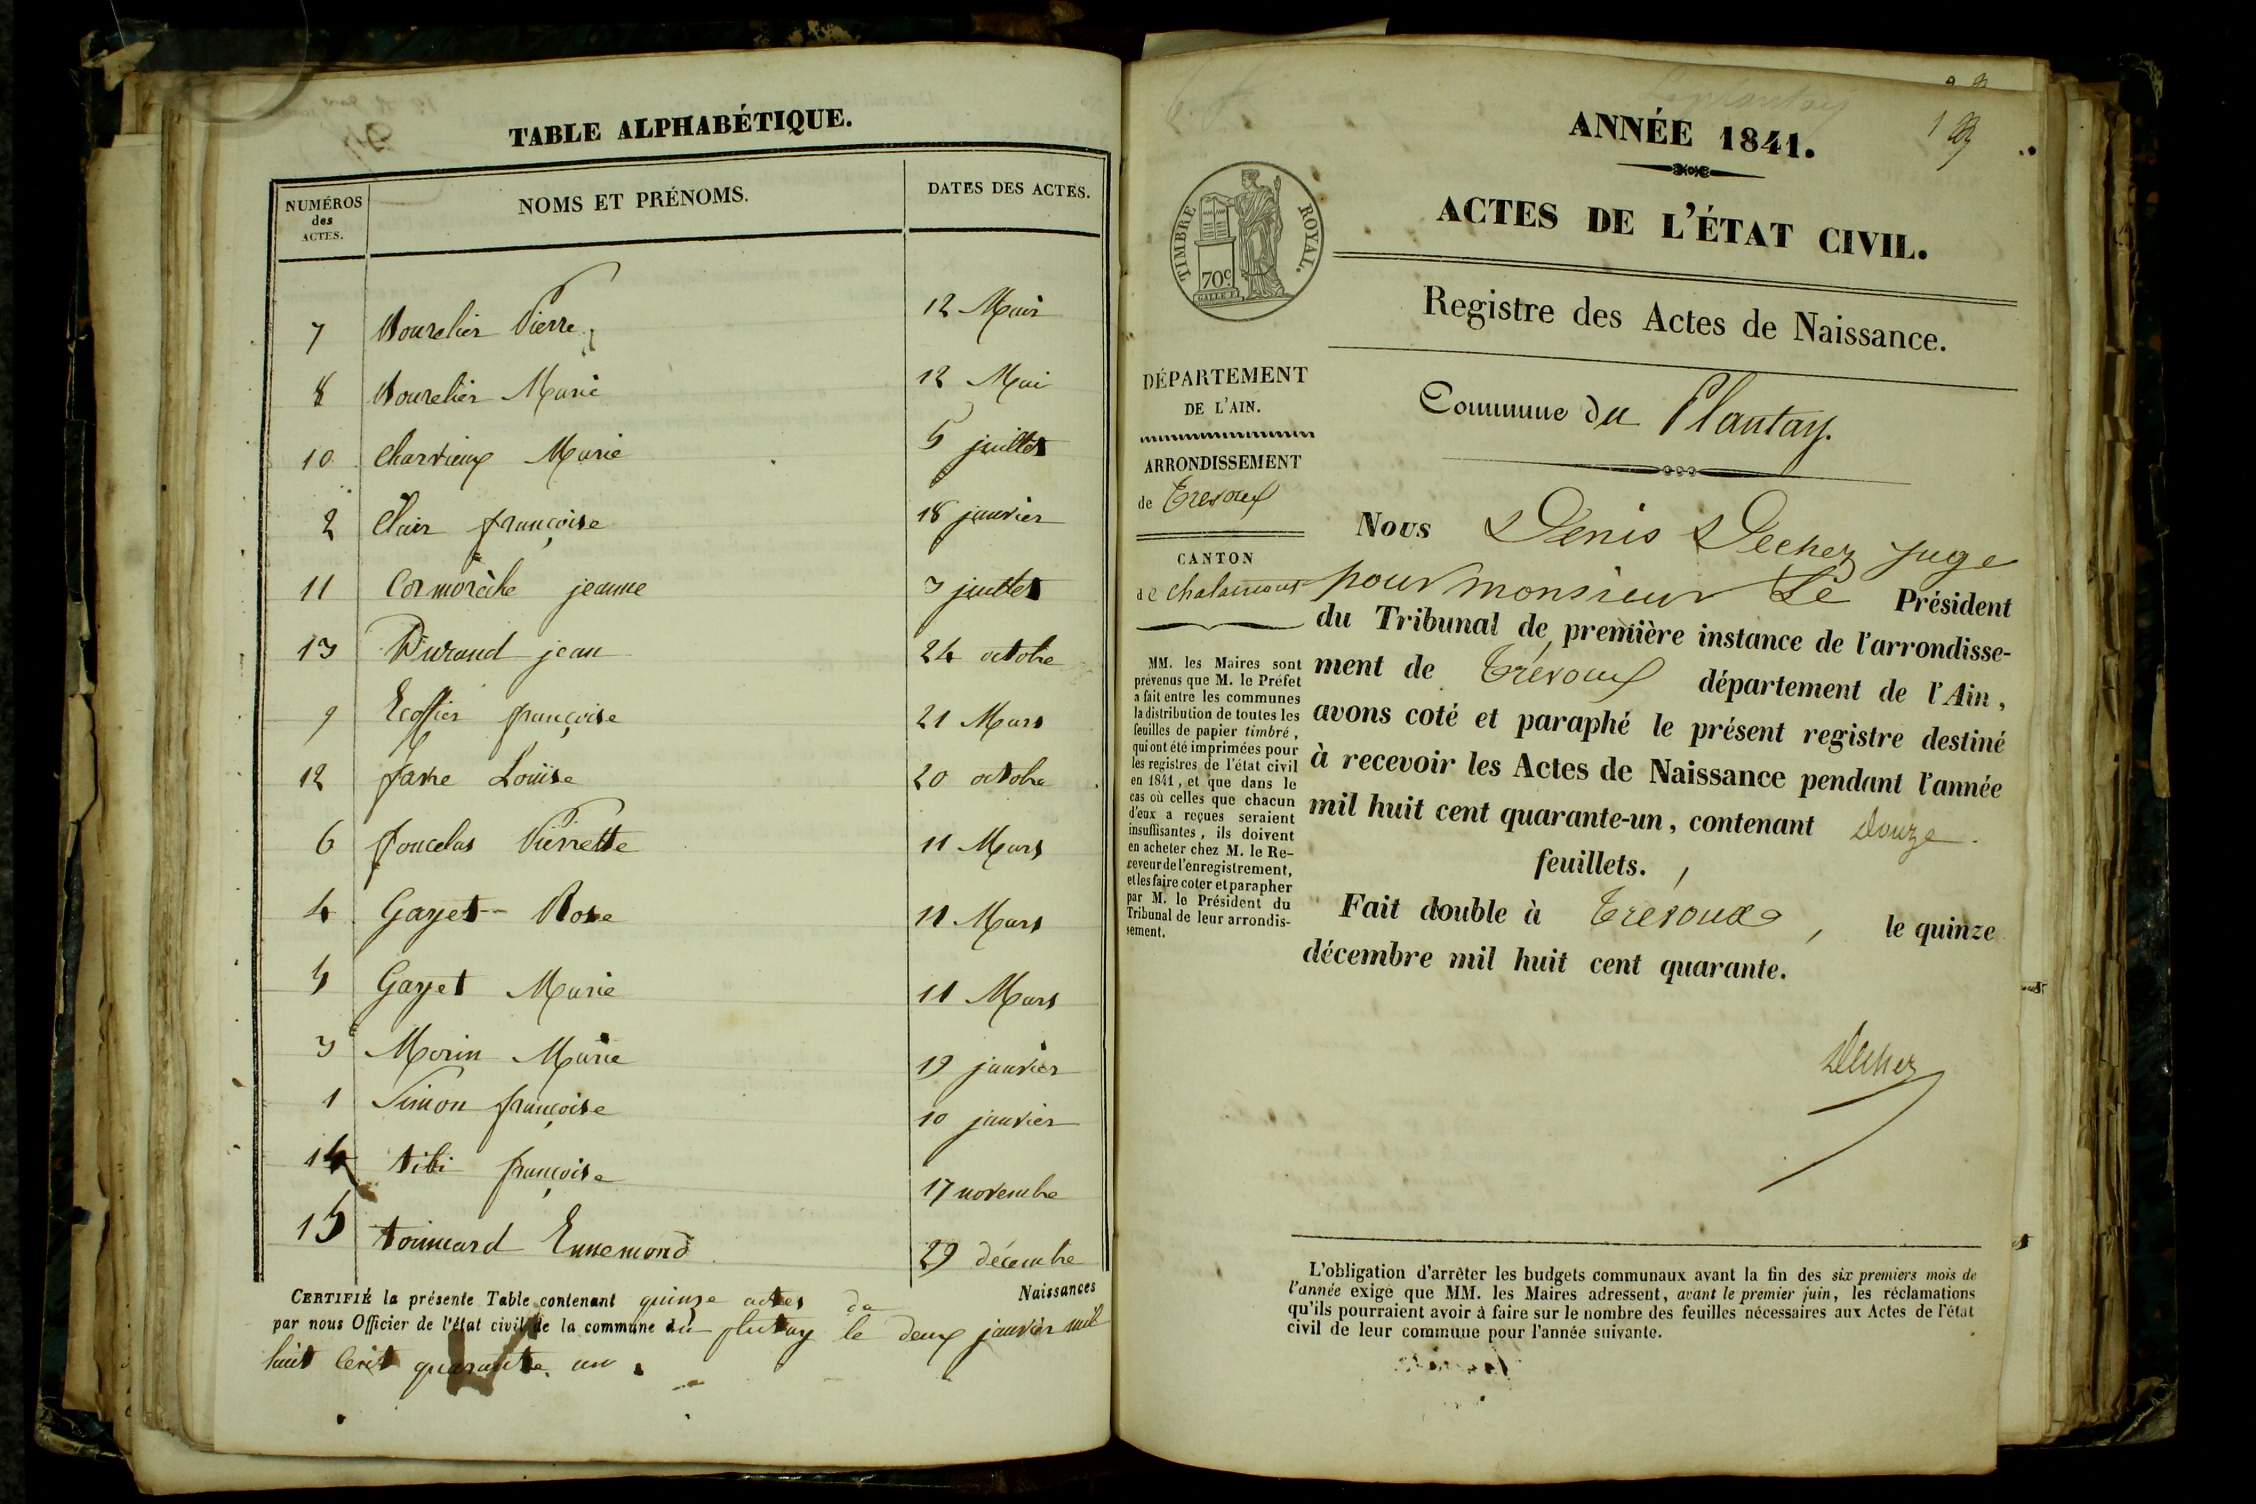 TABLE ALPHABÉTIQUE.
NUMÉROS des ACTES. NOMS ET PRÉNOMS. DATES DES ACTES.
7 Pierre 12 Mai
8 Marie 12 Mai
10 Charvieux Marie 5 juillet
2 Clair françoise 18 janvier
11 Cormorèche jeanne 3 juillet
13 Durand jean 24 octobre
9 Ecoffier françoise 21 Mars
12 favre Louïse 20 octobre
6 foucelas Pierrette 11 Mars
4 Gayet Rose 11 Mars
5 Gayet Marie 11 Mars
3 Morin Marie 19 janvier
1 Simon françoise 10 janvier
14 tibi françoise 17 novembre
15 Ennemond 29 décembre
CERTIFIÉ la présente Table contenant quinze actes de Naissances
par nous Officier de l'état civil de la commune du le deux janvier mil
huit Cent quarante un.
Leplantay
ANNÉE 1841.
1
ACTES DE L'ÉTAT CIVIL.
TIMBRE ROYAL.
70c
Registre des Actes de Naissance.
DÉPARTEMENT
DE L'AIN.
ARRONDISSEMENT
de Trevoux
CANTON
de chalamont
MM. les Maires sont
prévenus que M. le Préfet
a fait entre les communes
la distribution de toutes les
feuilles de papier timbré,
qui ont été imprimées pour
les registres de l'état civil
en 1841, et que dans le
cas où celles que chacun
d'eux a reçues seraient
insuffisantes, ils doivent
en acheter chez M. le Re-
ceveur de l'enregistrement,
et les faire coter et parapher
par M. le Président du
Tribunal de leur arrondis-
sement.
Commune du Plantay.
Nous Denis Dechez juge
pour monsieur Le Président
du Tribunal de première instance de l'arrondisse-
ment de Trévoux département de l'Ain,
avons coté et paraphé le présent registre destiné
à recevoir les Actes de Naissance pendant l'année
mil huit cent quarante-un, contenant douze
feuillets.
Fait double à Trevoux, le quinze
décembre mil huit cent quarante.
Dechez
L'obligation d'arrêter les budgets communaux avant la fin des six premiers mois de
l'année exige que MM. les Maires adressent, avant le premier juin, les réclamations
qu'ils pourraient avoir à faire sur le nombre des feuilles nécessaires aux Actes de l'état
civil de leur commune pour l'année suivante.